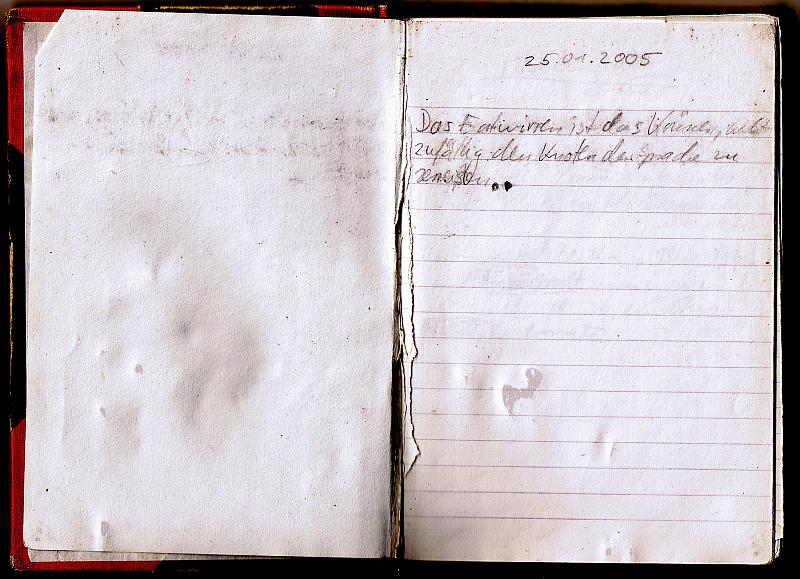 25.01.2005
Das Entwirren ist das Können, nicht
zufällig den Knoten der Sprache zu